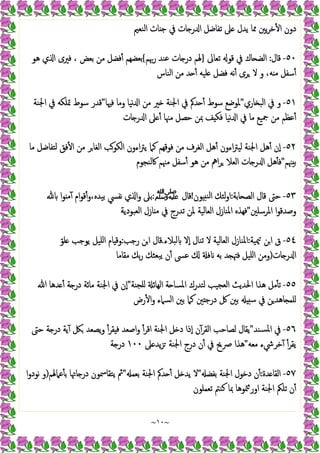 دون الأخريين مما يدل على تفاضل الدرجات في جنات النعيم
٥٠- قال: الضحاك في قوله تعالى {لهم درجات عند ربهم}بعضهم أفضل من بعض ، فيرى الذي هو
أسفل منه، و لا يرى أنه فضل عليه أحد من الناس
٥١- و في البخاري"لموضع سوط أحدكم في الجنة خير من الدنيا وما فيها"قدر سوط تملكه في الجنة
أعظم من جميع ما في الدنيا فكيف بمن حصل منها أعلى الدرجات
٥٢- إن أهل الجنة ليتراءون أهل الغرف من فوقهم كما يتراءون الكوكب الغابر من الأفق لتفاضل ما
بينهم"فأهل الدرجات العلا يراهم من هو أسفل منهم كالنجوم
٥٣- حتى قال الصحابة:اولئك النبيون!قال ﷺ:بلى والذي نفسي بيده،وأقوام آمنوا بالله
وصدقوا المرسلين"فهذه المنازل العالية لمن تدرج في منازل العبودية
٥٤- ابن تيمية:المنازل العالية لا تنال إلا بالبلاء.قال ابن رجب:وقيام الليل يوجب علو
الدرجات(ومن الليل فتهجد به نافلة لك عسى أن يبعثك ربك مقاما
٥٥- تأمل هذا الحديث العجيب لتدرك المساحة الهائلة للجنة"إن في الجنة مائة درجة أعدها الله
للمجاهدين في سبيله بين كل درجتين كما بين السماء والأرض
٥٦- في المسند"يقال لصاحب القرآن إذا دخل الجنة اقرأ واصعد فيقرأ ويصعد بكل آية درجة حتى
يقرأ آخر شيء معه"هذا صريح في أن درج الجنة تزيد على ١٠٠ درجة
٥٧- القاعدة:أن دخول الجنة بفضله"لا يدخل أحدكم الجنة بعمله"ثم يتقاسمون درجاتها بأعمالهم(و نودوا
أن تلكم الجنة اورثتموها بما كنتم تعملون
~١٠~